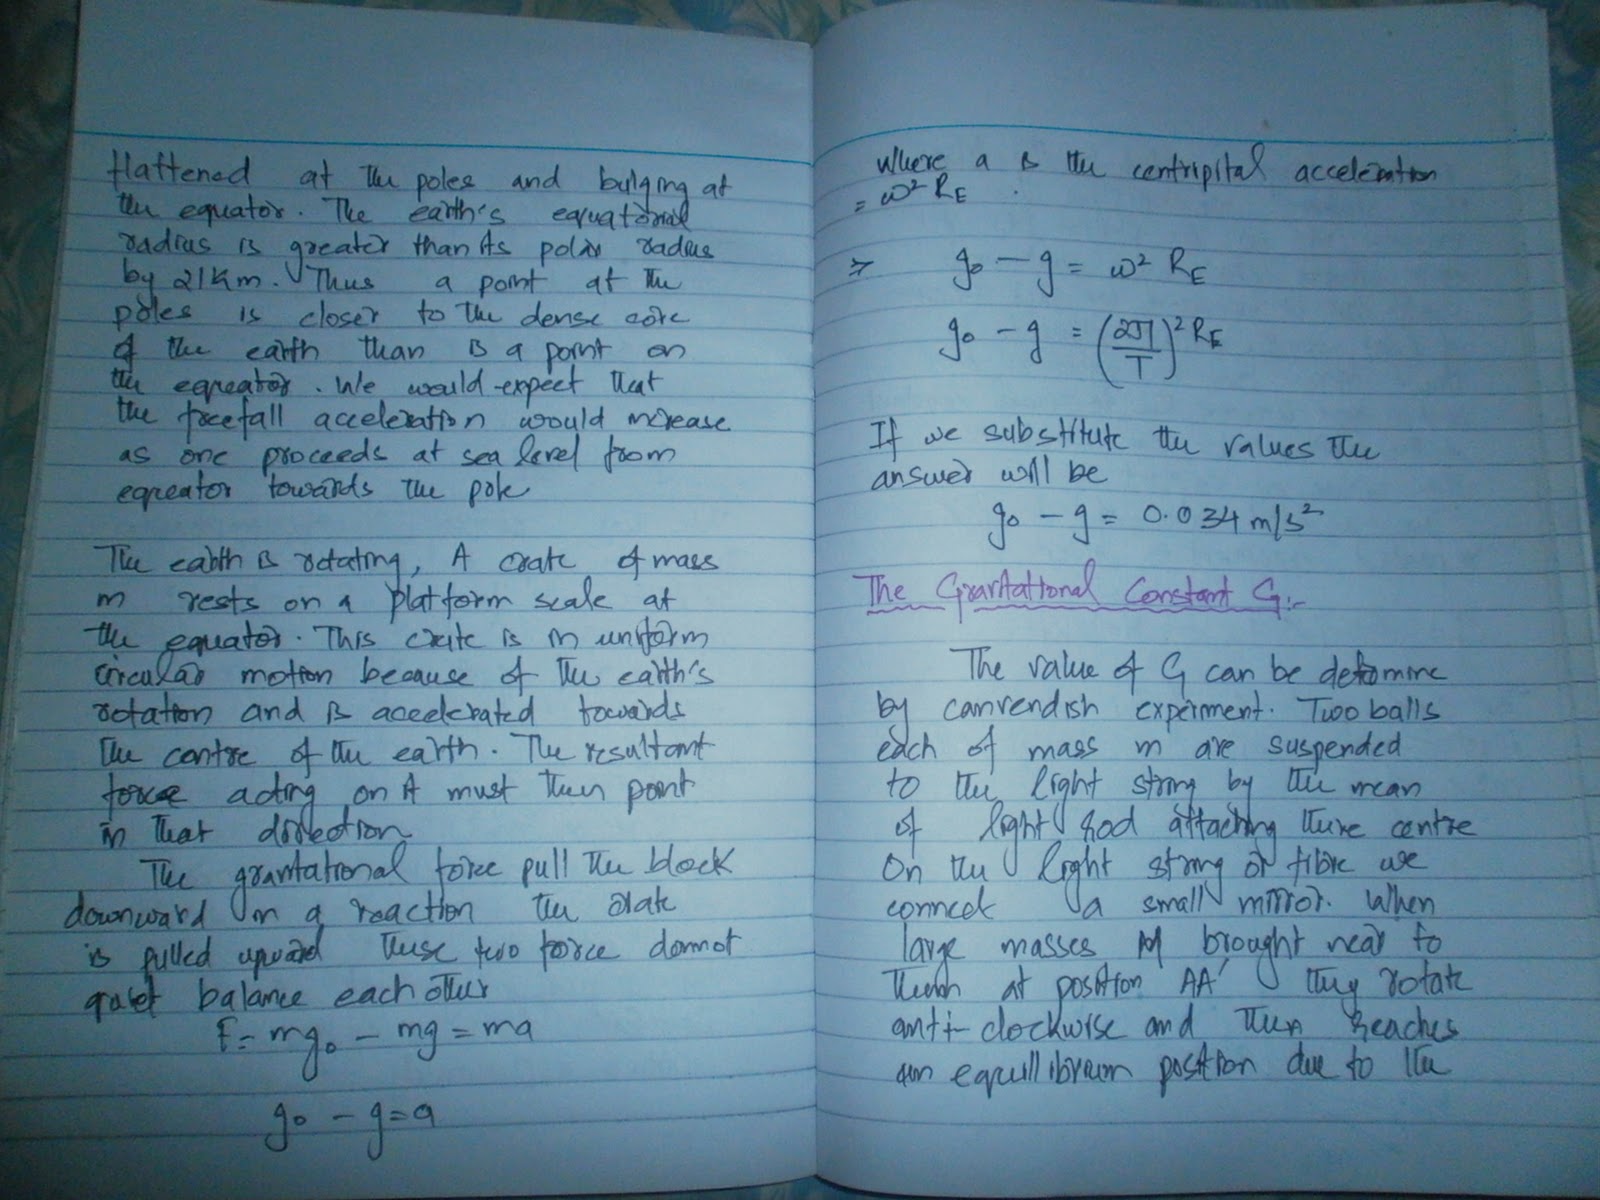 flattened at the poles and bulging at
the equator. The earth's equatorial
radius is greater than its polar radius
by 21km. Thus a point at the
poles is closer to the dense core
of the earth than is a point on
the equeator. We would expect that
the freefall acceleration would increase
as one proceeds at sea level from
equeator towards the pole
The earth is rotating, A crate of mass
m rests on a platform scale at
the equator. This crate is in uniform
circular motion because of the earth's
rotation and is accelerated towards
the centre of the earth. The resultant
force acting on A must then point
in that direction
The gravitational force pull the block
downward in a reaction the crate
is pulled upward these two force donnot
balance each other
F = mg₀ - mg = ma
g₀ - g = a
where a is the centripital acceleration
= ω² R_E .
⇒ g₀ - g = ω² R_E
g₀ - g = (2π/T)² R_E
If we substitute the values the
answer will be
g₀ - g = 0.034 m/s²
The Gravitational Constant G:-
The value of G can be detomine
by canvendish experiment. Two balls
each of mass m are suspended
to the light string by the mean
of light rod attaching there centre
On the light string or fibre we
connect a small mirror. When
large masses M brought near to
them at position AA' they rotate
anti-clockwise and then reaches
an equillibrium position due to the